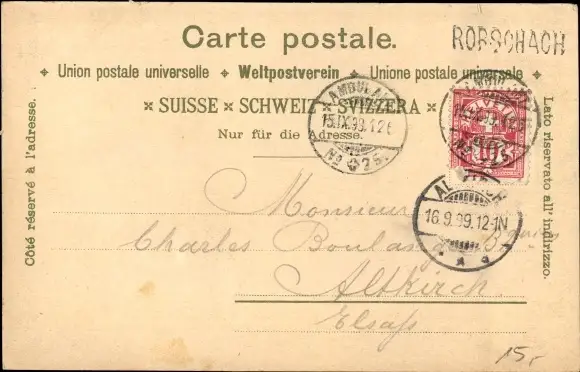 Carte postale.
RORSCHACH
Union postale universelle ✦ Weltpostverein ✦ Unione postale universale
× SUISSE × SCHWEIZ × SVIZZERA ×
Nur für die Adresse.
Côté réservé à l'adresse.
Lato riservato all' indirizzo.
AMBULANT
15.IX.99.126
No 25
HELVETIA
10
AMBULANT
No 25
ALTKIRCH
16.9.99.12-1N
* a
Monsieur
Charles Boulanger
Altkirch
Elsaß
15,-